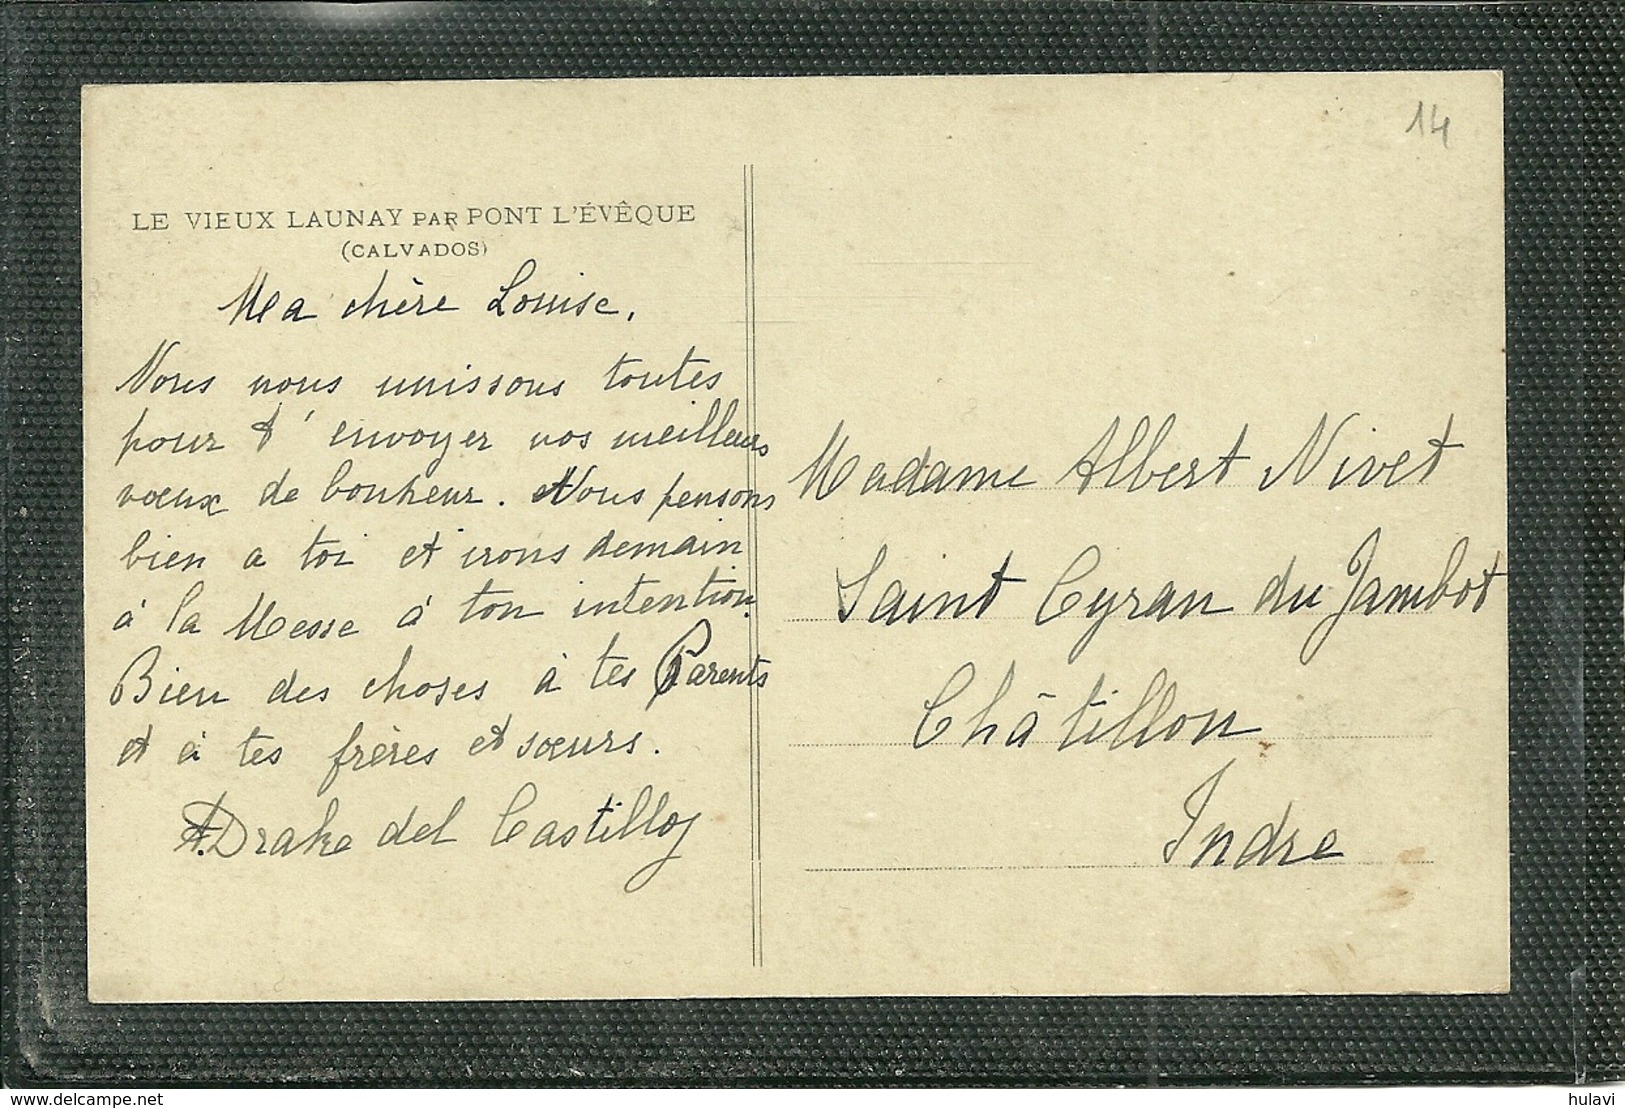 14
LE VIEUX LAUNAY PAR PONT L'ÉVÊQUE
(CALVADOS)
Ma chère Louise,
Nous nous unissons toutes
pour t'envoyer nos meilleurs
vœux de bonheur. Nous pensons
bien a toi et irons demain
à la Messe à ton intention.
Bien des choses à tes Parents
et à tes frères et sœurs.
A. Drake del Castilloy
Madame Albert Nivet
Saint Cyran du Jambot
Châtillon
Indre
hulavi
www.delcampe.net